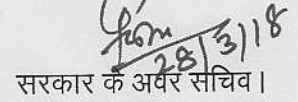 28/3/18
सरकार के अवर सचिव।